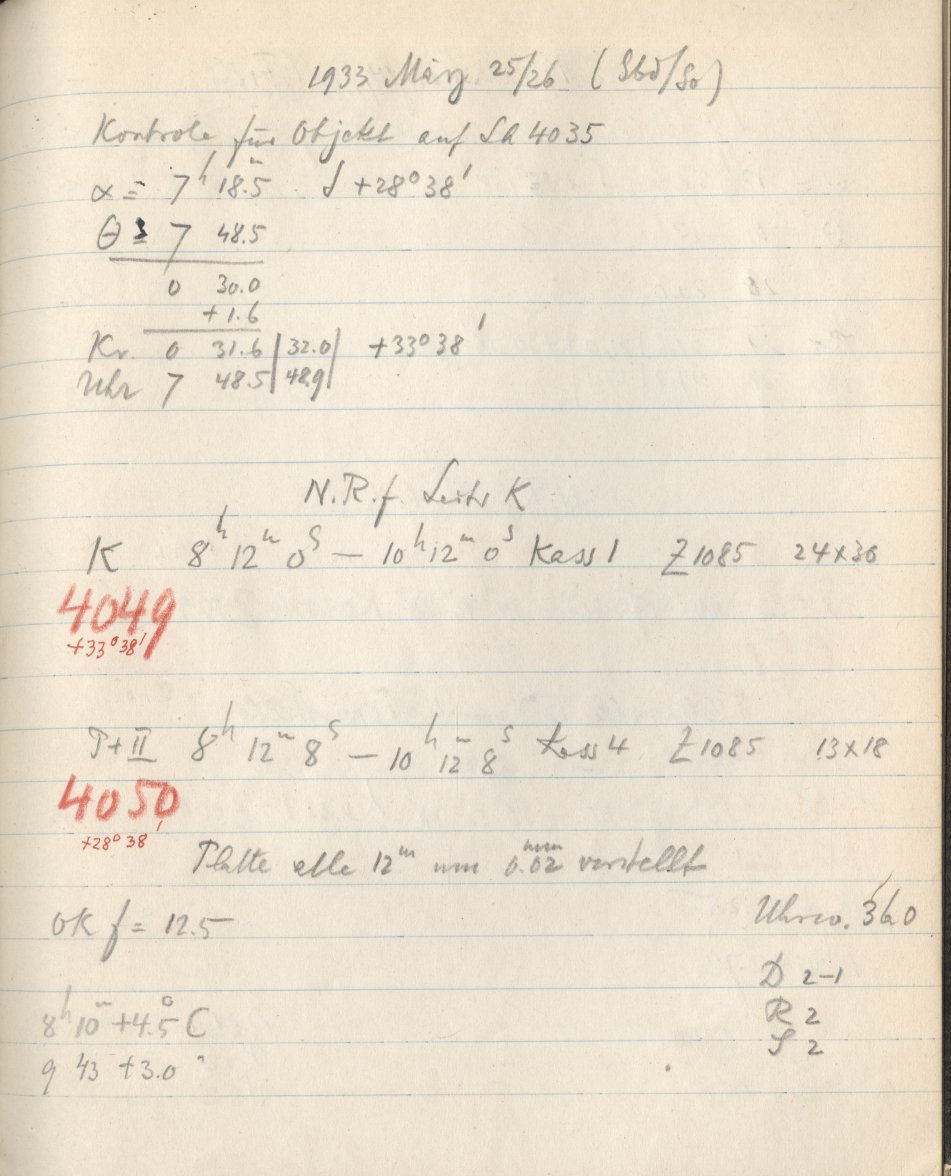 1933 März 25/26 (Sbd/So)
Kontrole für Objekt auf Pl 4035
α = 7h 18.5m δ +28°38'
θ = 7 48.5
0 30.0
+1.6
Kr. 0 31.6 | 32.0 | +33°38'
Uhr 7 48.5 | 48.9 |
N.R.f. K
K 8h 12m 0s — 10h 12m 0s Kass 1 Z1085 24x30
4049
+33°38'
P+II 8h 12m 8s — 10h 12m 8s Kass 4 Z1085 13x18
4050
+28°38'
Platte alle 12m um 0.02mm verstellt
OK f = 12.5
Uhrco. 36.0
D 2-1
R 2
S 2
8h 10m +4.5° C
9 43 +3.0 "